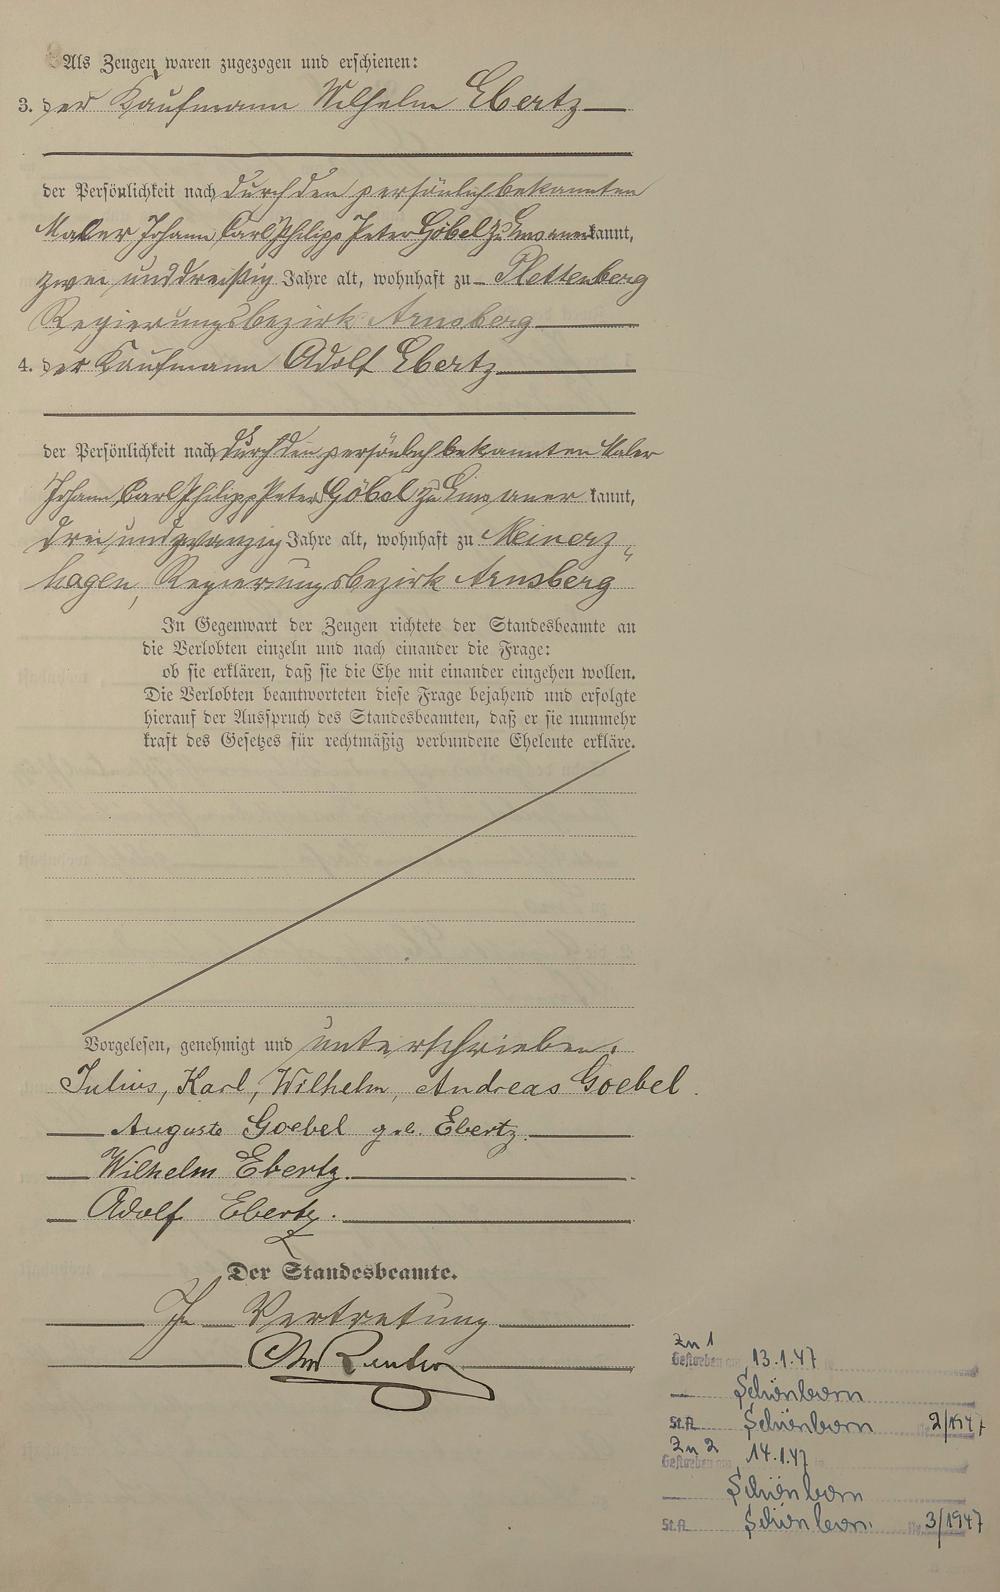 Als Zeugen waren zugezogen und erschienen:
3. der Kaufmann Wilhelm Ebertz
der Persönlichkeit nach durch den persönlich bekannten
Maler Johann Carl Philipp Peter Göbel zu Ems anerkannt,
zwei und dreißig Jahre alt, wohnhaft zu Plettenberg
Regierungsbezirk Arnsberg
4. der Kaufmann Adolf Ebertz
der Persönlichkeit nach durch den persönlich bekannten Maler
Johann Carl Philipp Peter Göbel zu Ems aner kannt,
drei und zwanzig Jahre alt, wohnhaft zu Meinerz„
hagen, Regierungsbezirk Arnsberg
In Gegenwart der Zeugen richtete der Standesbeamte an
die Verlobten einzeln und nach einander die Frage:
ob sie erklären, daß sie die Ehe mit einander eingehen wollen.
Die Verlobten beantworteten diese Frage bejahend und erfolgte
hierauf der Ausspruch des Standesbeamten, daß er sie nunmehr
kraft des Gesetzes für rechtmäßig verbundene Eheleute erkläre.
Vorgelesen, genehmigt und unterschrieben.
Julius, Karl, Wilhelm, Andreas Goebel.
Auguste Goebel geb. Ebertz.
Wilhelm Ebertz.
Adolf Ebertz.
Der Standesbeamte.
In Vertretung
Zu 1
Gestorben am 13.1.47 in
Schönborn
St.A. Schönborn Nr. 2/1947
Zu 2
Gestorben am 14.1.47 in
Schönborn
St.A. Schönborn. Nr. 3/1947